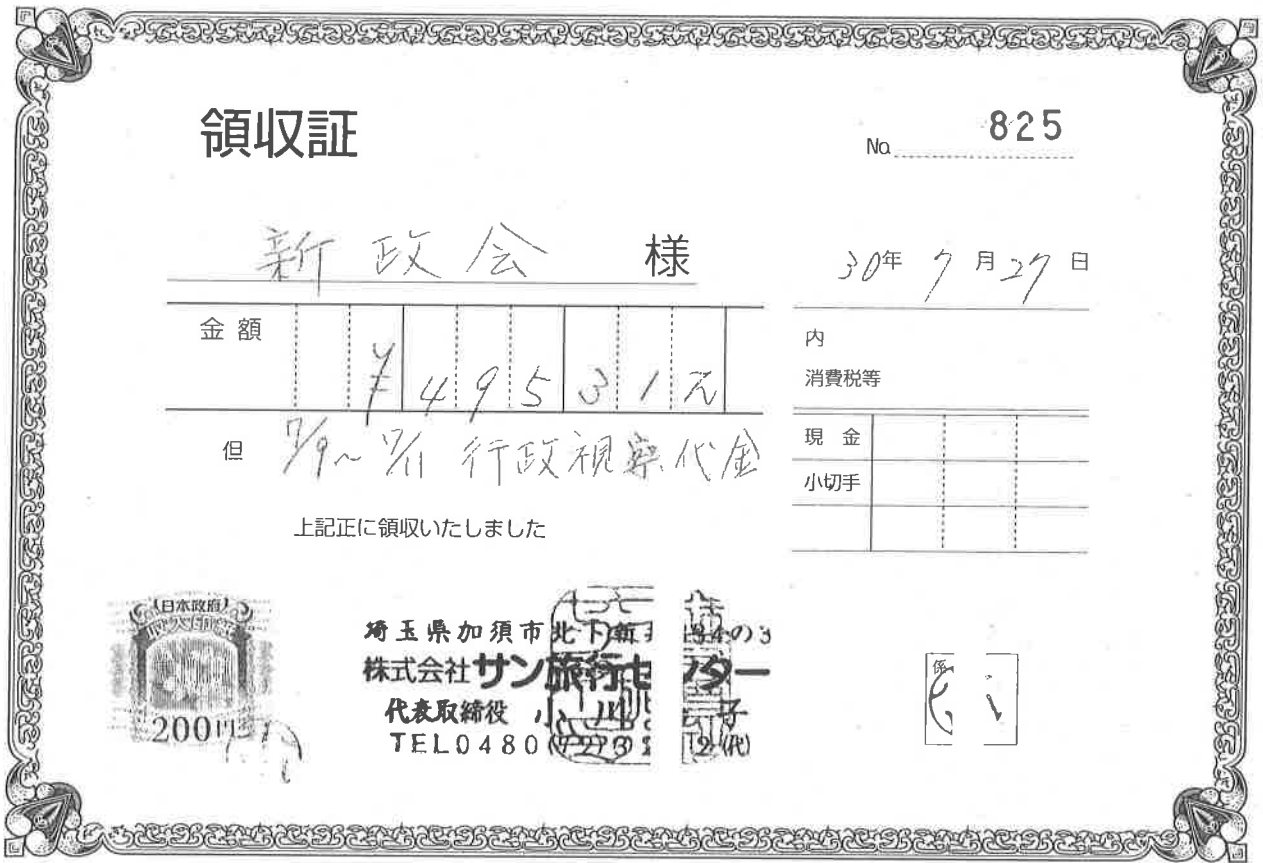 領収証
No. 825
新政会 様
30年 7月 27日
金額 ¥49531元
但 7/9~7/11 行政視察代金
上記正に領収いたしました
内
消費税等
現金
小切手
日本政府
収入印紙
200円
埼玉県加須市北下新 の3
株式会社サン旅行センター
代表取締役 小川 子
TEL0480(72)3 2(代)
係